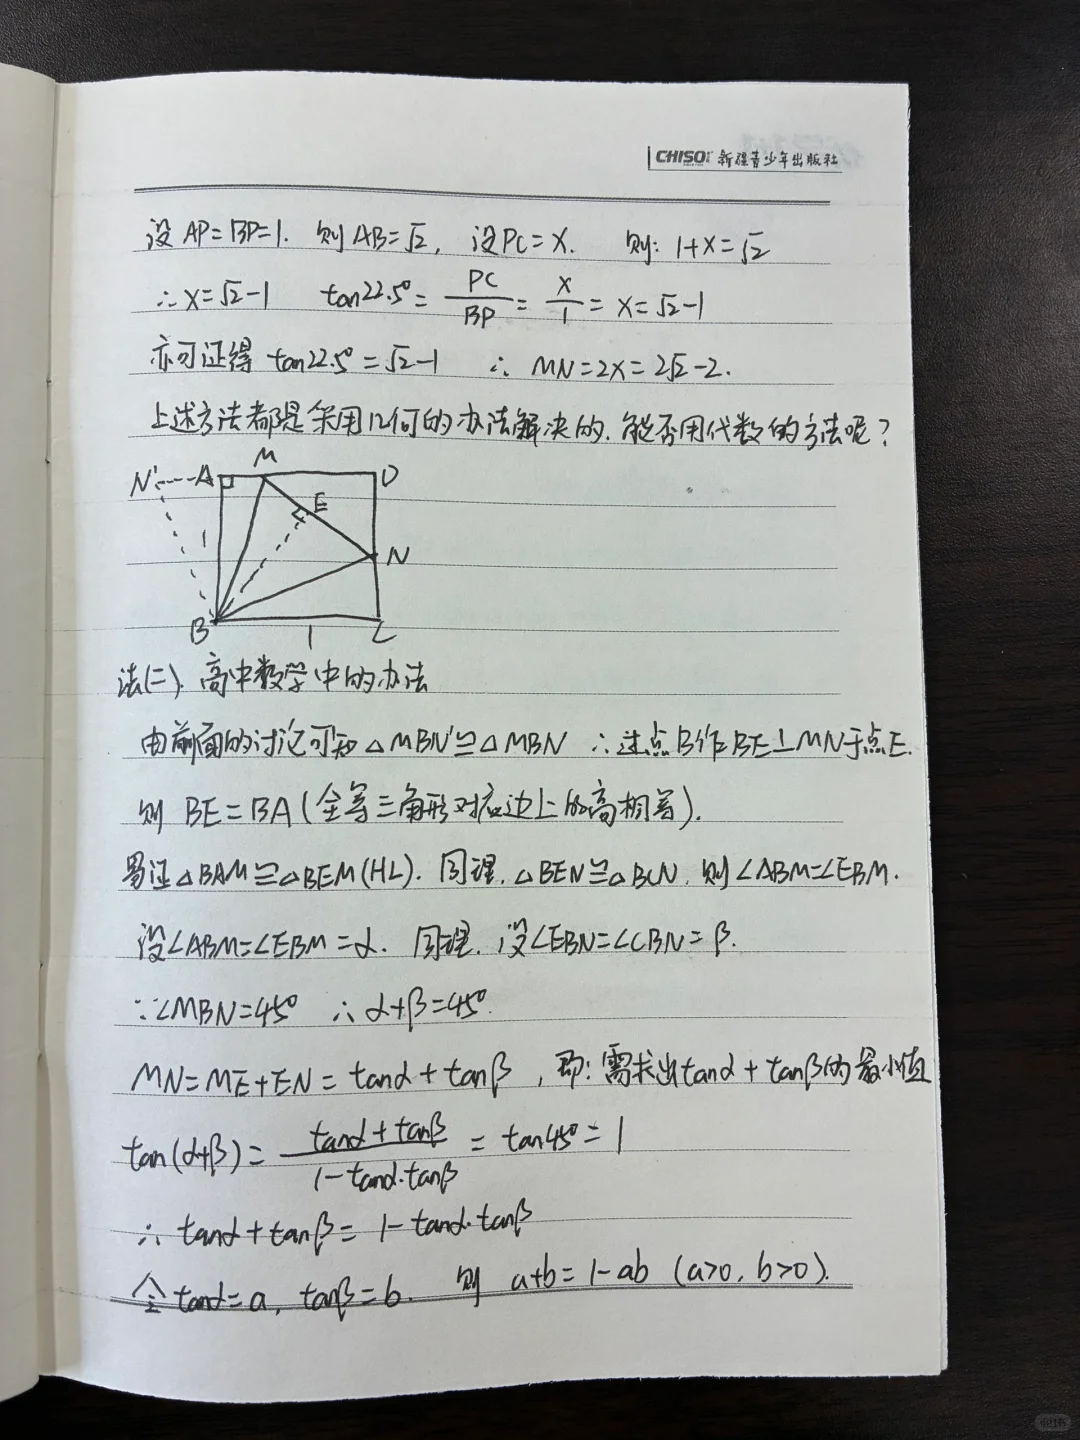 CHISO 新疆青少年出版社
设 AP=BP=1. 则AB=√2, 设PC=x. 则: 1+x=√2
∴x=√2-1 tan22.5°= PC/BP = x/1 = x=√2-1
亦可证得 tan22.5°=√2-1 ∴ MN=2x=2√2-2.
上述方法都是采用几何的办法解决的. 能否用代数的方法呢?
N' A M D
E
1
N
B 1 C
法(二). 高中数学中的办法
由前面的讨论可知 △MBN'≌△MBN ∴过点B作BE⊥MN于点E.
则 BE=BA(全等三角形对应边上的高相等).
易证△BAM≌△BEM(HL). 同理. △BEN≌△BCN. 则∠ABM=∠EBM.
设∠ABM=∠EBM=α. 同理. 设∠EBN=∠CBN=β.
∵∠MBN=45° ∴α+β=45°.
MN=ME+EN=tanα+tanβ, 即: 需求出tanα+tanβ的最小值
tan(α+β)= (tanα+tanβ)/(1-tanα·tanβ) = tan45°=1
∴ tanα+tanβ=1-tanα·tanβ
令tanα=a, tanβ=b. 则 a+b=1-ab (a>0, b>0).
小红书